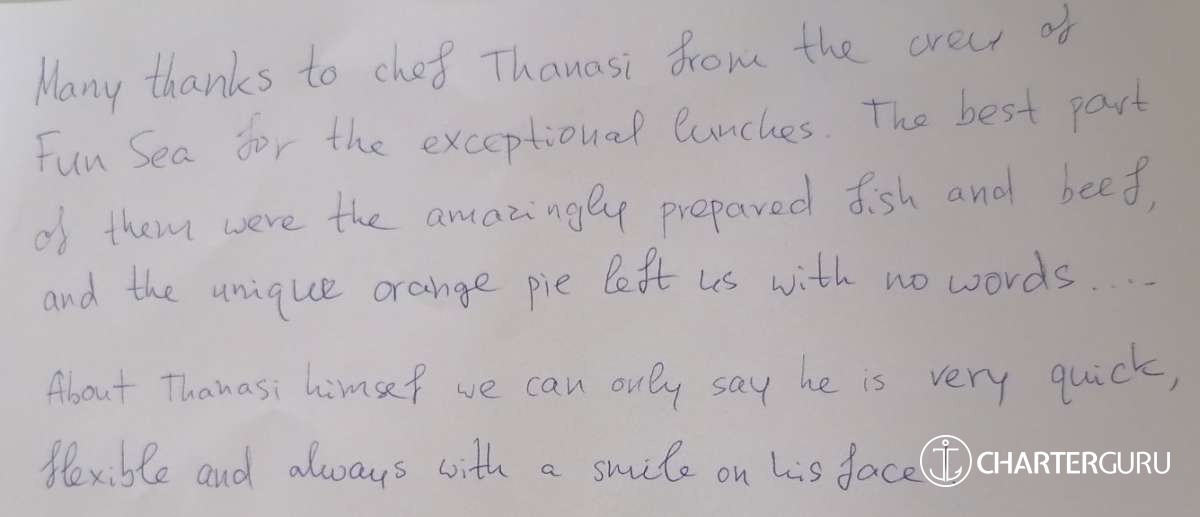 Many thanks to chef Thanasi from the crew of
Fun Sea for the exceptional lunches. The best part
of them were the amazingly prepared fish and beef,
and the unique orange pie left us with no words....
About Thanasi himsef we can only say he is very quick,
flexible and always with a smile on his face
CHARTERGURU